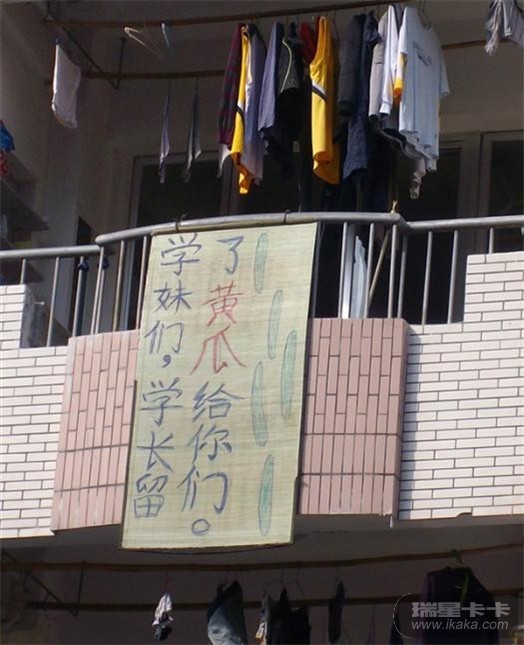 学妹们，学长留
了黄瓜给你们。
瑞星卡卡
www.ikaka.com